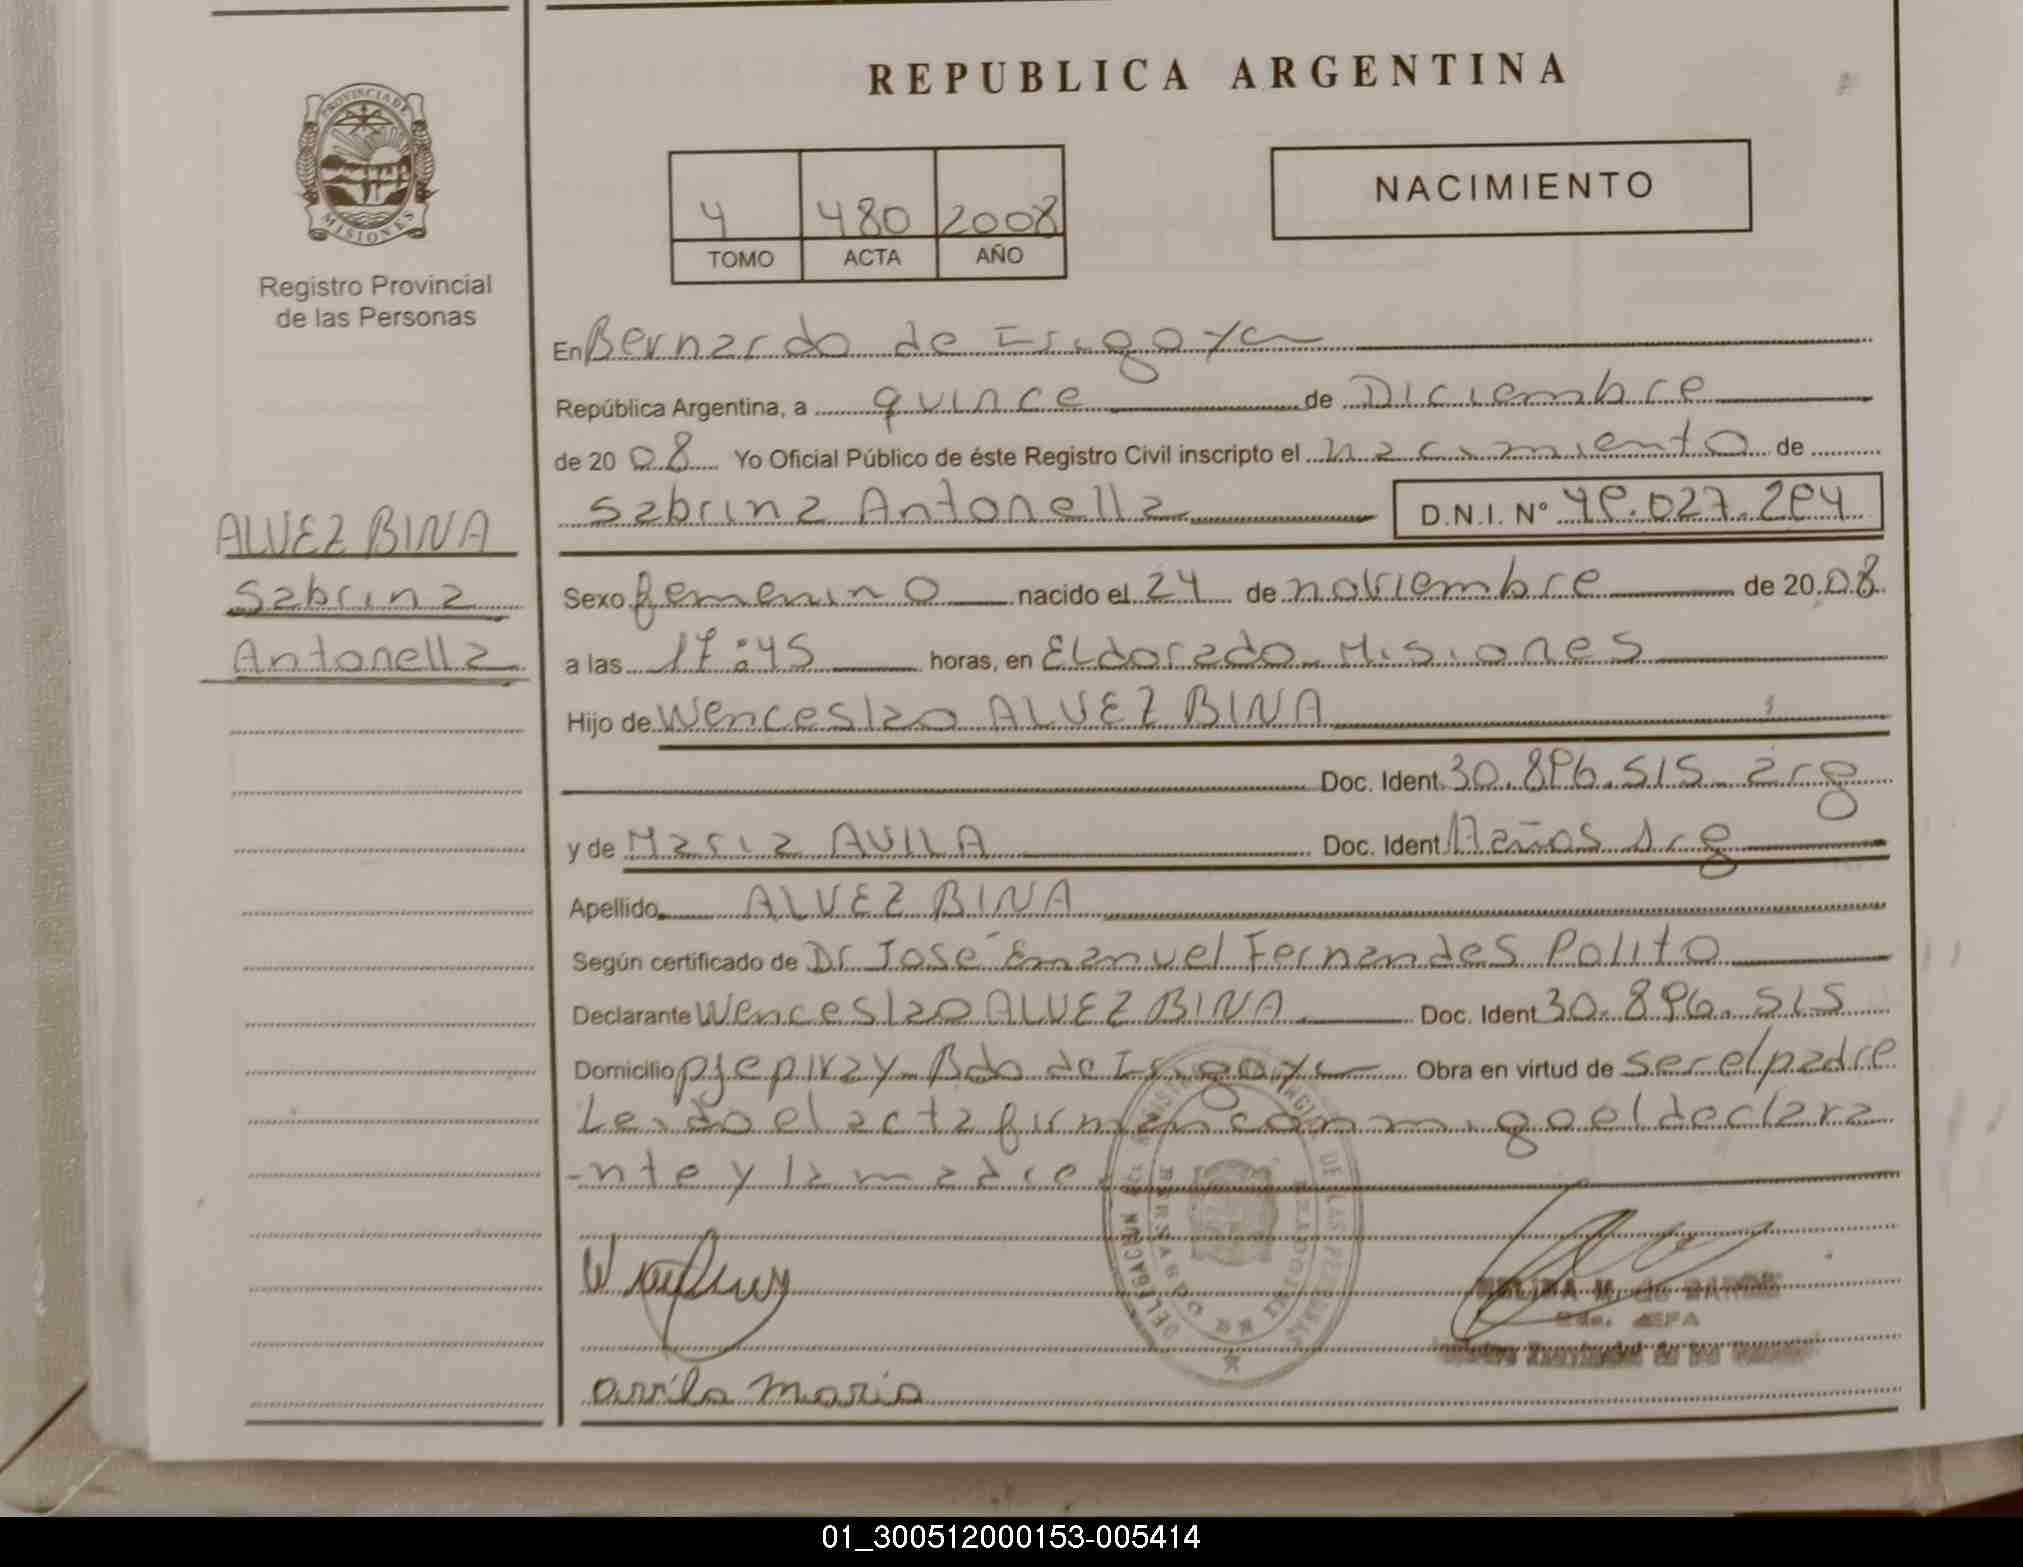 REPUBLICA ARGENTINA
PROVINCIA DE
MISIONES
Registro Provincial
de las Personas
NACIMIENTO
4 480 2008
TOMO ACTA AÑO
En Bernardo de Irigoyen
República Argentina, a quince de Diciembre
de 20 08 Yo Oficial Público de éste Registro Civil inscripto el nacimiento de
Sabrina Antonella D.N.I. Nº 49.027.294
ALVEZ BINA
Sabrina
Antonella
Sexo femenino nacido el 24 de noviembre de 20 08
a las 17:45 horas, en Eldorado Misiones
Hijo de Wenceslao ALVEZ BINA
Doc. Ident. 30.896.515 arg
y de Maria AVILA Doc. Ident. 17 años Arg
Apellido ALVEZ BINA
Según certificado de Dr José Emanuel Fernandes Polito
Declarante Wenceslao ALVEZ BINA Doc. Ident 30.896.515
Domicilio pje piray Bdo de Irigoyen Obra en virtud de ser el padre
Leido el acta firman conmigo el declara
-nte y la madre
DELEGACION DE LAS PERSONAS
BERNARDO IRIGOYEN
avila maria
01_300512000153-005414